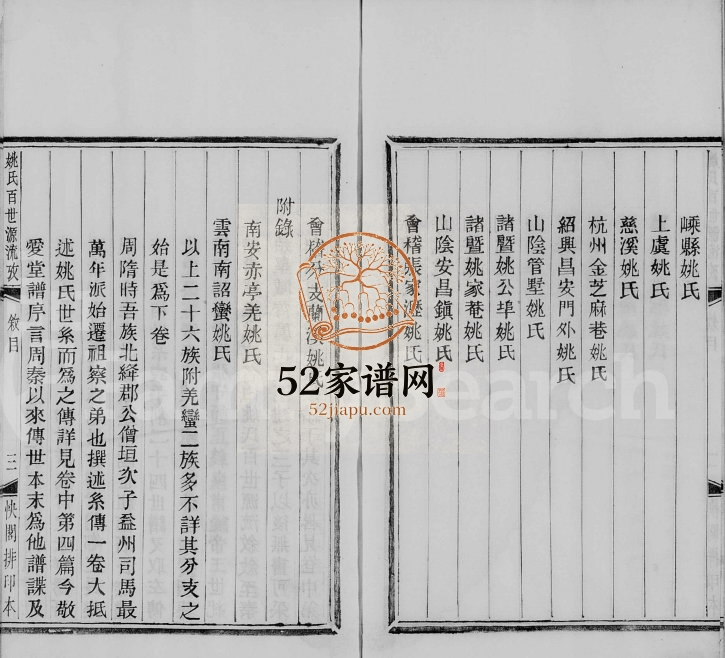 嵊縣姚氏
上虞姚氏
慈溪姚氏
杭州金芝麻巷姚氏
紹興昌安門外姚氏
山陰管墅姚氏
諸暨姚公埠姚氏
諸暨姚家菴姚氏
山陰安昌鎮姚氏
會稽張家瀝姚氏
會稽分支蘭溪姚氏
附錄
南安赤亭羌姚氏
雲南南詔蠻姚氏
以上二十六族附羌蠻二族多不詳其分支之
始是爲下卷
周隋時吾族北絳郡公僧垣次子益州司馬最
萬年派始遷祖察之弟也撰述系傳一卷大抵
述姚氏世系而爲之傳詳見卷中第四篇今敬
愛堂譜序言周秦以來傳世本末爲他譜諜及
姚氏百世源流攷
敘目
三
快閣排印本
52家谱网
52jiapu.com